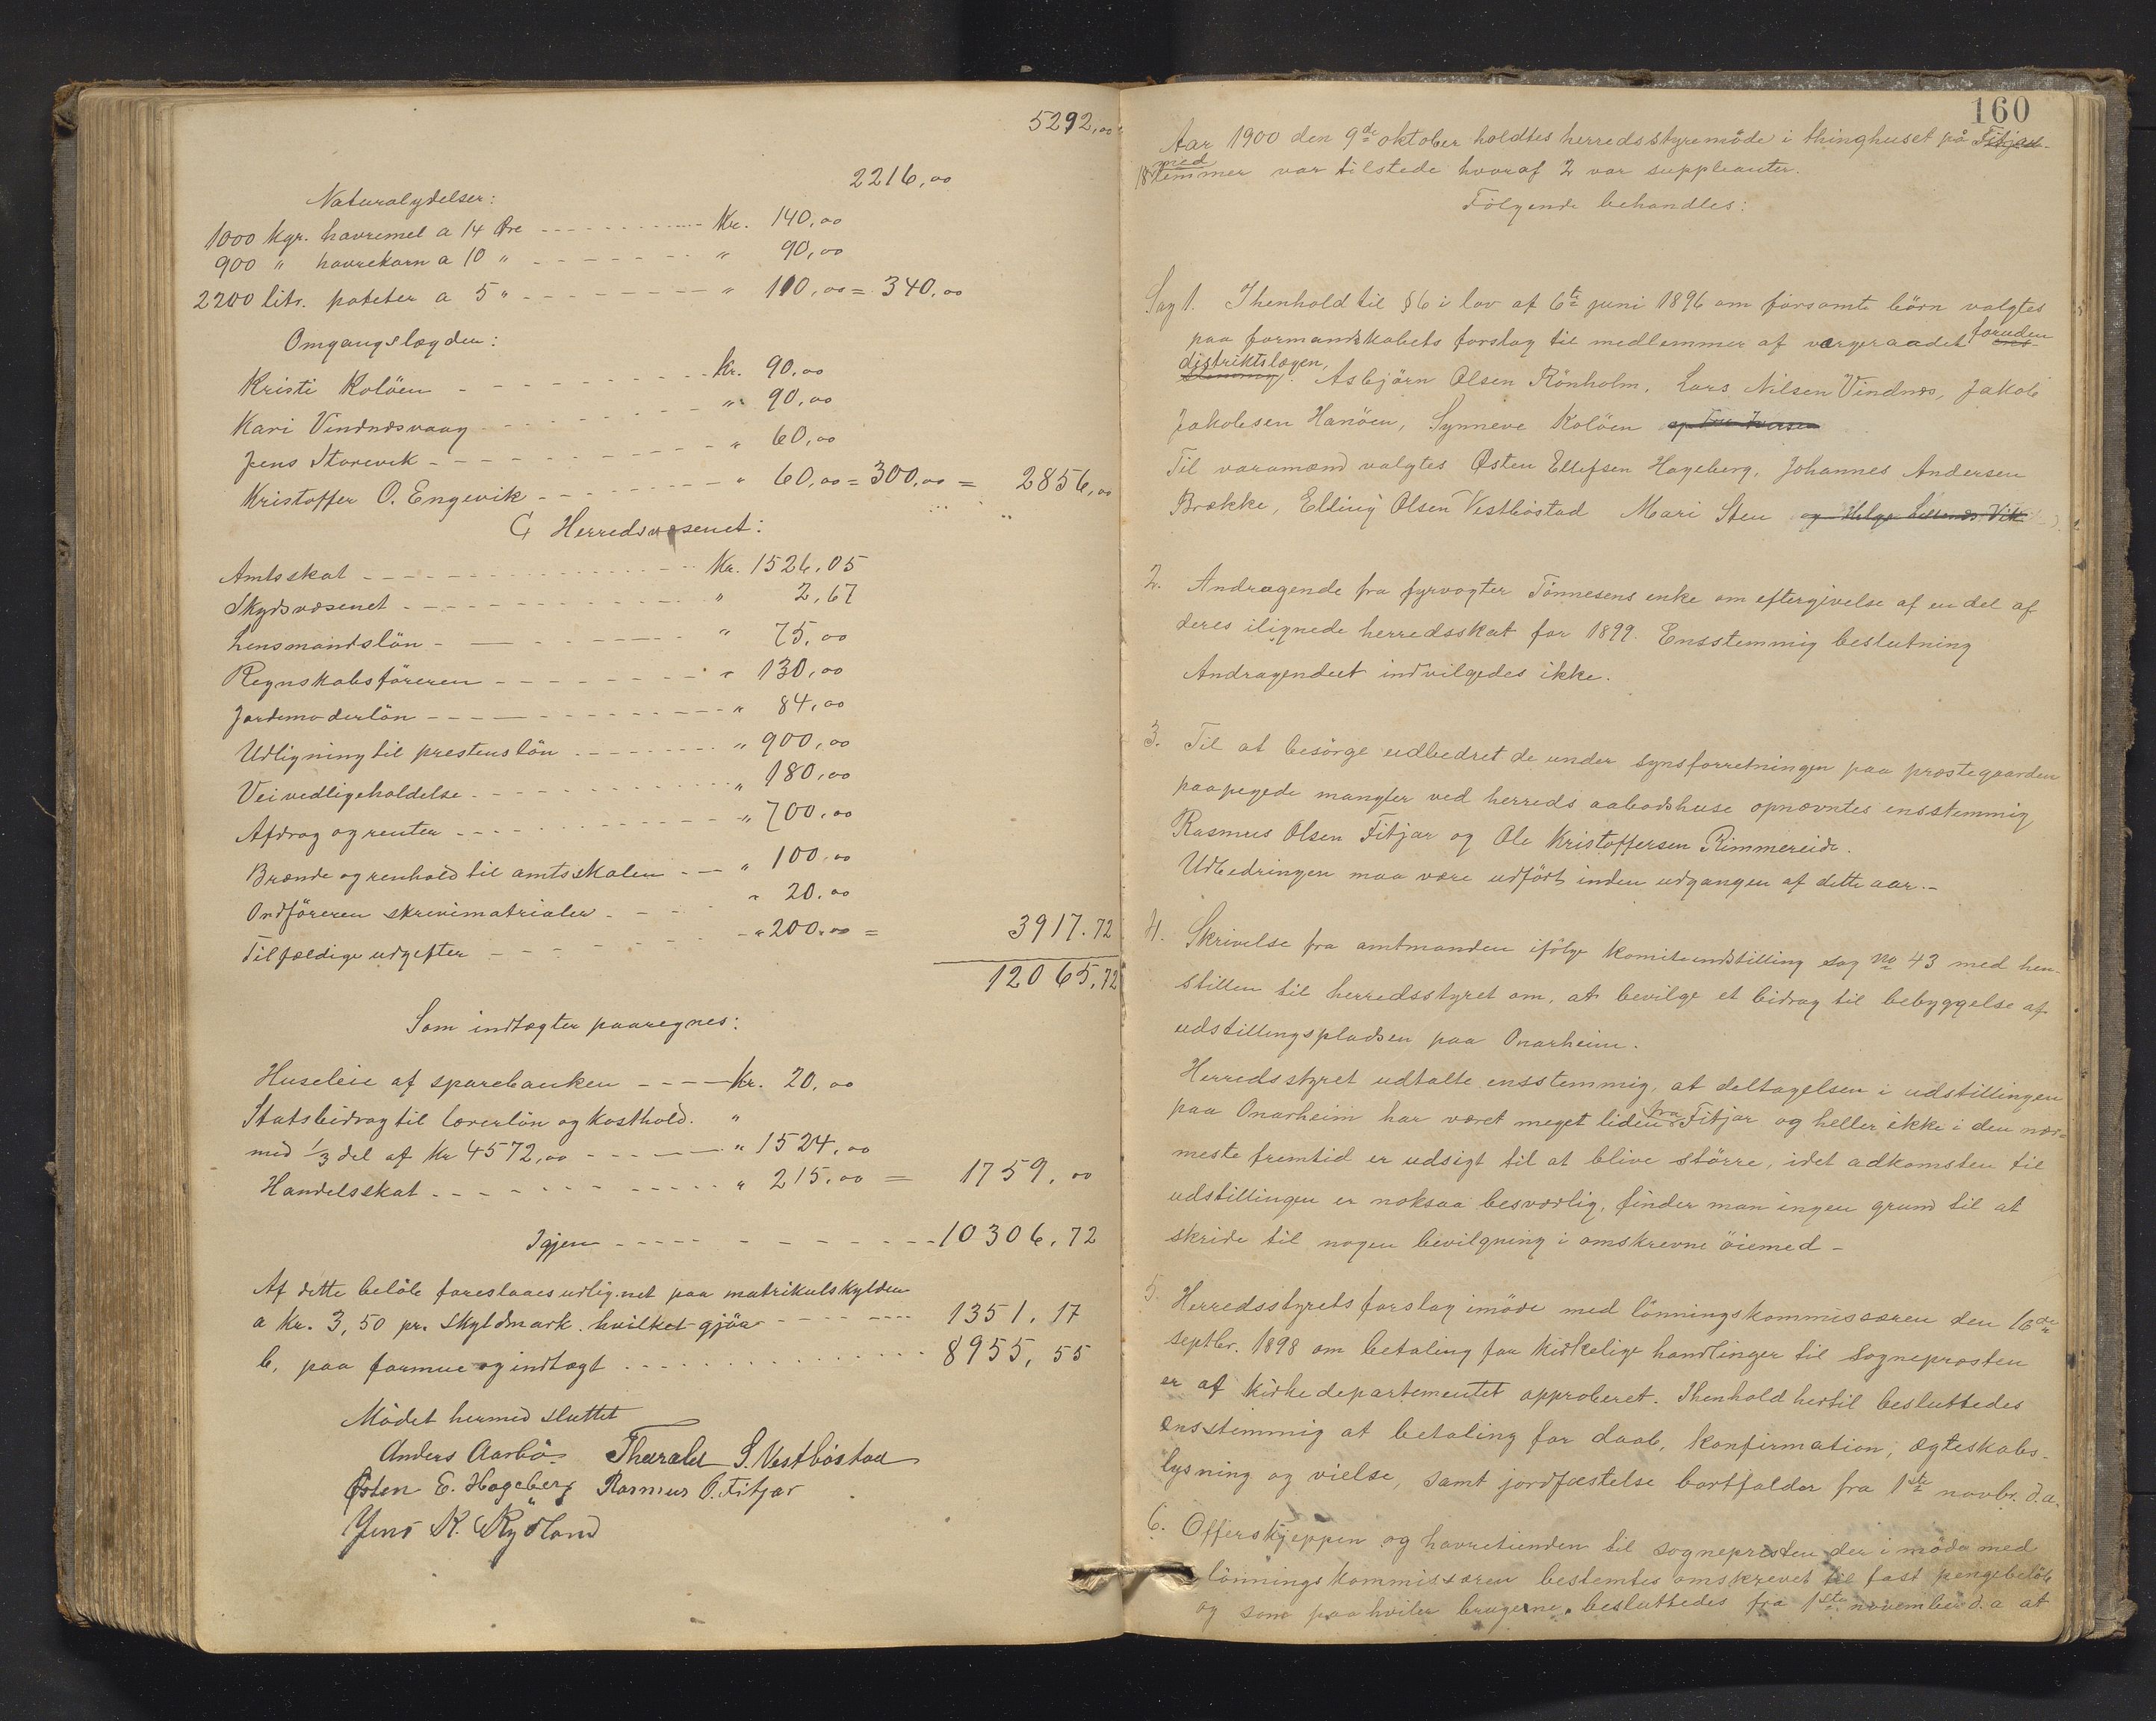 5292,00
2216,00
Naturalydelser:
1000 kgr. havremel a 14 Øre - - - Kr. 140,00
900 " havrekorn a 10 " - - - " 90,00
2200 litr. poteter a 5 " - - - " 110,00 = 340,00
Omgangslægden:
Kristi Kolöen - - - Kr. 90,00
Kari Vindnæsvaag - - - " 90,00
Jens Storevik - - - " 60,00
Kristoffer O. Engevik - - - " 60,00 = 300,00 = 2856,00
C, Herredsvæsenet:
Amtsskat - - - Kr. 1526,05
Skydsvæsenet - - - " 2,67
Lensmandslön - - - " 75,00
Regnskabsföreren - - - " 130,00
Jordemoderlön - - - " 84,00
Udligning til prestens lön - - - " 900,00
Veivedligeholdelse - - - " 180,00
Afdrag og renter - - - " 700,00
Brænde og renhold til amtsskolen - - " 100,00
Ordföreren skrivimatrialer - - - " 20,00
Tilfældige udgifter - - - " 200,00 = 3917.72
12065,72
Som indtægter paaregnes:
Huseleie af sparebanken - - - Kr. 20,00
Statsbidrag til lærerlön og kosthold. "
med 1/3 del af Kr 4572,00 - - - " 1524,00
Handelsskat - - - " 215,00 = 1759,00
Igjen - - - 10306,72
Af dette belöb foreslaaes udlignet paa matrikulskylden
a Kr. 3,50 pr. skyldmark. hvilket gjör - - - 1351,17
b, paa formue og indtægt - - - 8955,55
Mödet hermed sluttet
Anders Aarbö Tharald S. Vestböstad
Østen E. Hageberg Rasmus O. Fitjar
Jens K. Rydland
160
Aar 1900 den 9de oktober holdtes herredsstyremöde i thinghuset på Fitjar
18 medlemmer var tilstede hvoraf 2 var suppleanter.
Fölgende behandles:
Sag 1. Ihenhold til § 6 i lov af 6te juni 1896 om forsömte börn valgtes
paa formandskabets forslag til medlemmer af værgeraadet foruden
distriktslægen, Asbjörn Olsen Rönholm, Lars Nilsen Vindnæs, Jakob
Jakobsen Hanöen, Synneve Kolöen
Til varamænd valgtes Østen Ellefsen Hageberg, Johannes Andersen
Brække, Elling Olsen Vestböstad Mari Sten og Helge Vik
2. Andragende fra fyrvogter Tönnesens enke om eftergivelse af en del af
deres ilignede herredsskat for 1899. Ensstemmig beslutning
Andragendeet indvilgedes ikke.
3. Til at besörge udbedret de under synsforretningen paa præstegaarden
paapegede mangler ved herreds aabodshuse opnævntes ensstemmig
Rasmus Olsen Fitjar og Ole Kristoffersen Rimmereide.
Udbedringen maa være udfört inden udgangen af dette aar.-
4. Skrivelse fra amtmanden ifölge komiteindstilling sag No 43 med hen-
stillen til herredsstyret om, at bevilge et bidrag til bebyggelse af
udstillingspladsen paa Onarheim.
Herredsstyret udtalte ensstemmig, at deltagelsen i udstillingen
paa Onarheim har været meget liden fra Fitjar og heller ikke i den nær-
meste fremtid er udsigt til at blive större, idet adkomsten til
udstillingen er noksaa besværlig, finder man ingen grund til at
skride til nogen bevilgning i omskrevne öiemed -
5. Herredsstyrets forslag imöde med lönningskommissæren den 16de
septbr. 1898 om betaling for kirkelige handlinger til sognepræsten
er af kirkedepartementet approberet. Ihenhold hertil besluttedes
ensstemmig at betaling for daab, konfirmation, ægteskabs-
lysning og vielse, samt jordfæstelse bortfalder fra 1ste novbr. d.a.
6. Offerskjeppen og havretienden til sognepresten der i möde med
lönningskommissæren bestemtes omskrevet til fast pengebelöb
og som paahviler brugerne, besluttedes fra 1ste november d.a at